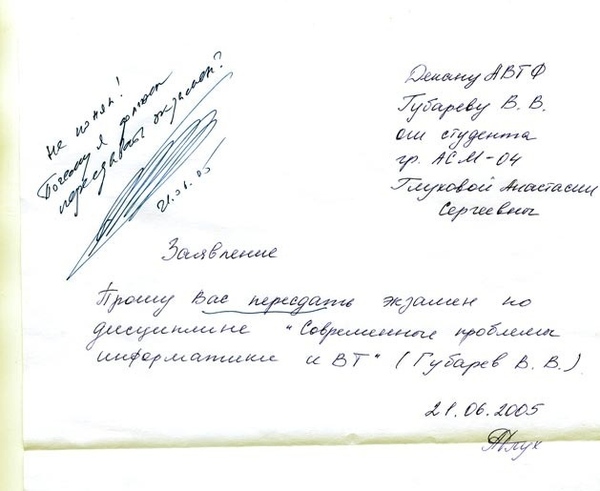 не понял!
Почему я должен
пересдавать экзамен?
21.06.05
Декану АВТФ
Губареву В. В.
от студента
гр. АСМ-04
Глуховой Анастасии
Сергеевны
Заявление
Прошу Вас пересдать экзамен по
дисциплине "Современные проблемы
информатики и ВТ" (Губарев В. В.)
21.06.2005
АГлух